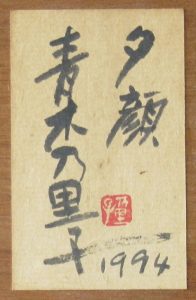 夕顔
青木乃里子
1994